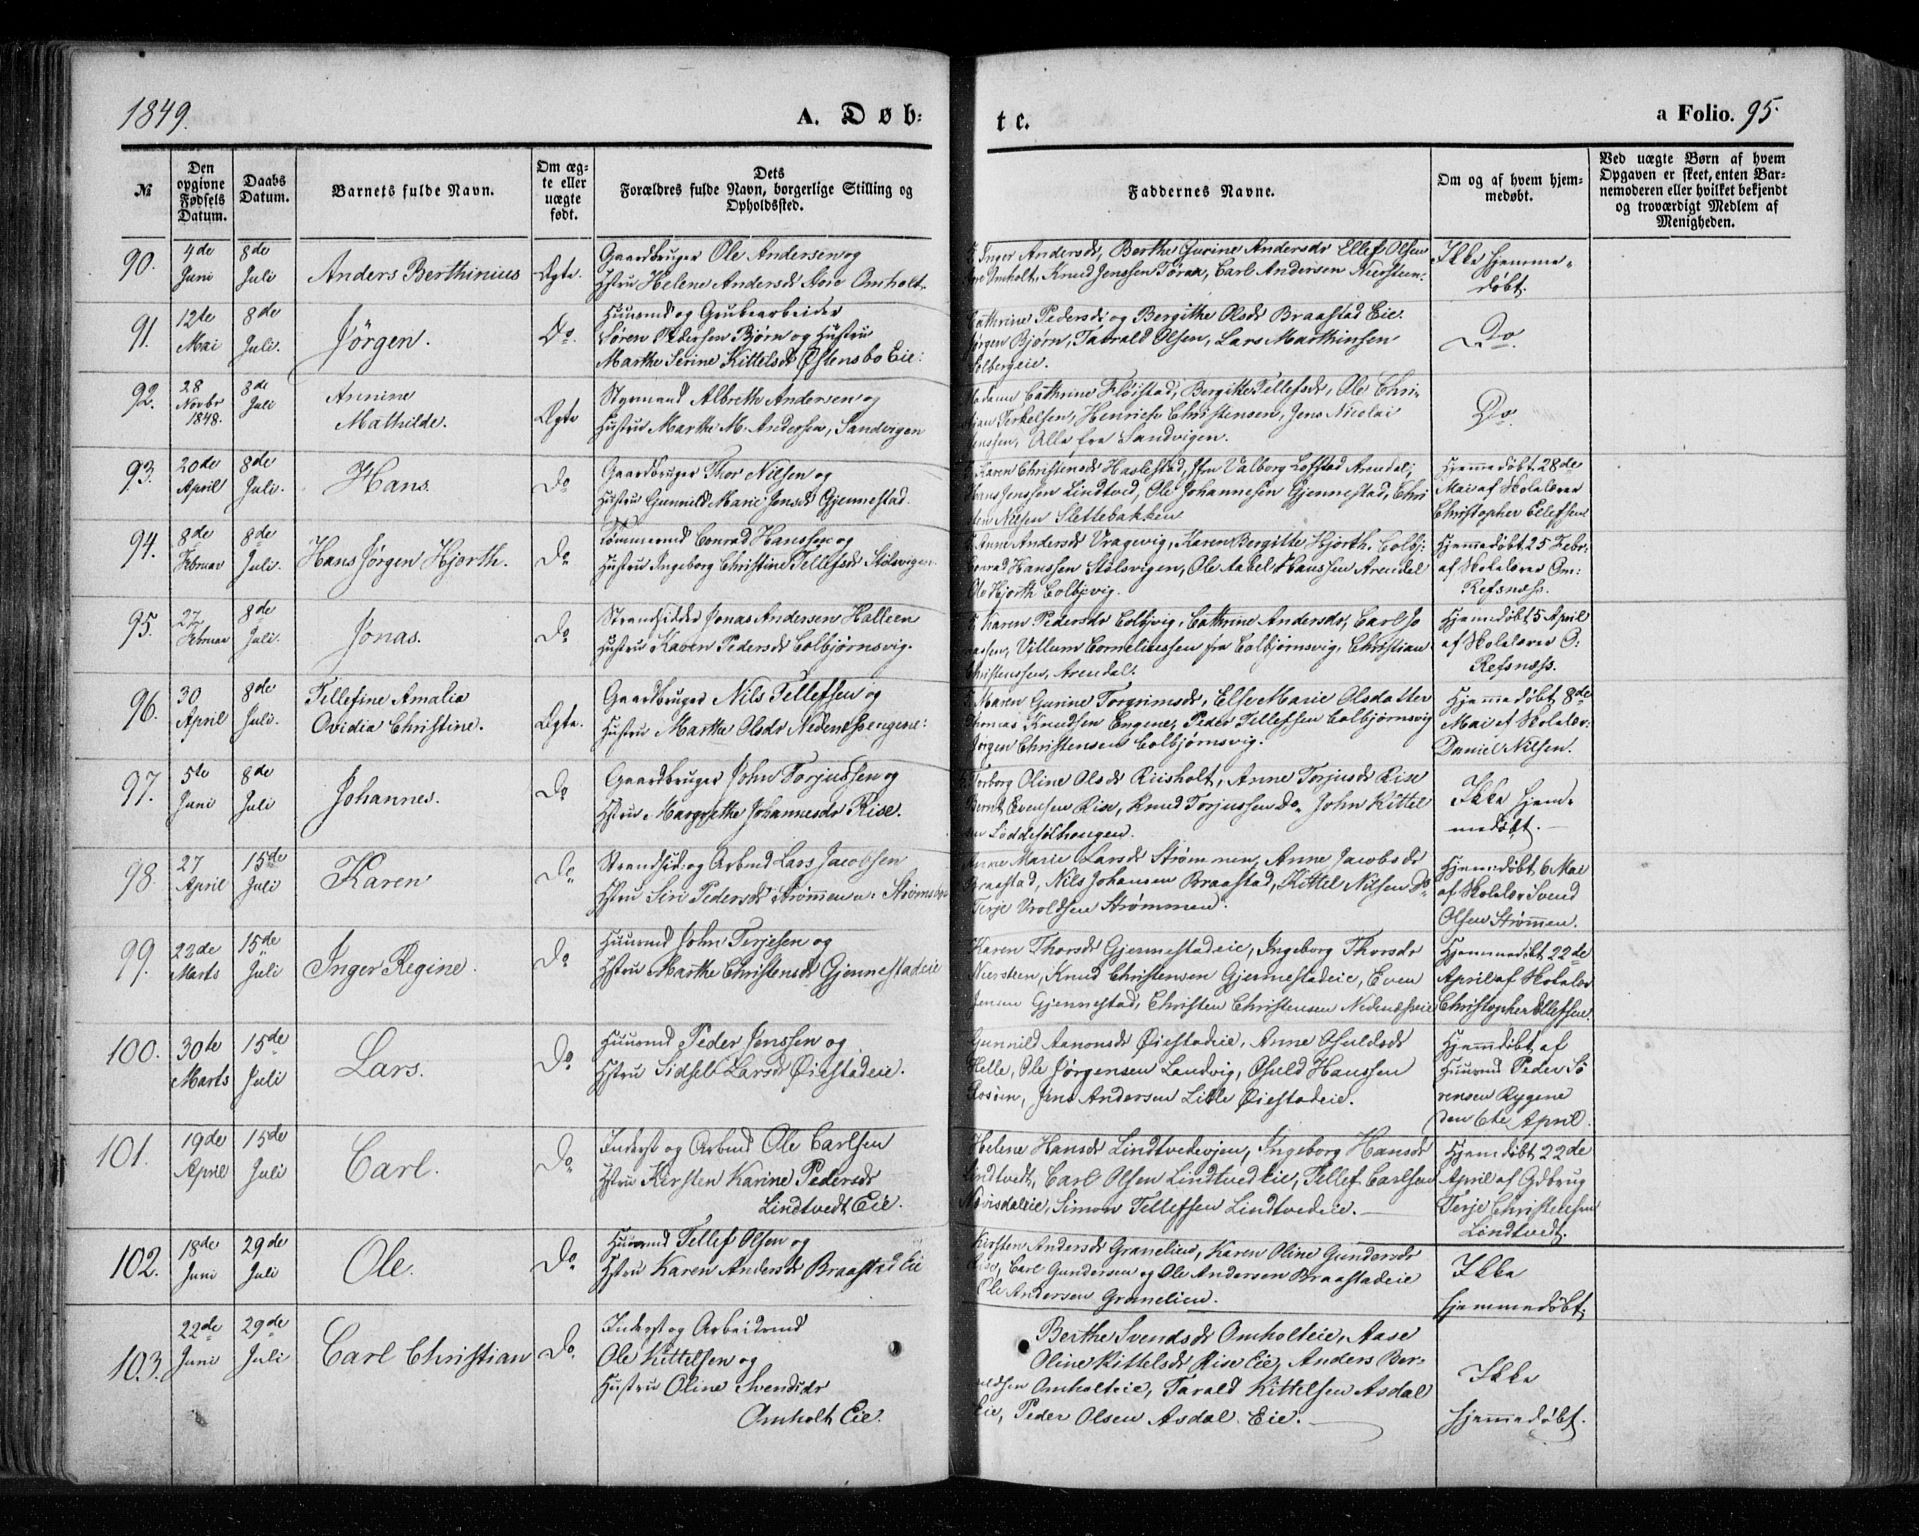 1849.
A. Døb:
te.
a Folio. 95.
№
Den opgivne Fødsels Datum.
Daabs Datum.
Barnets fulde Navn.
Om ægte eller uægte født.
Dets Forældres fulde Navn, borgerlige Stilling og Opholdssted.
Faddernes Navne.
Om og af hvem hjemmedøbt.
Ved uægte Børn af hvem Opgaven er skeet, enten Barnemoderen eller hvilket bekjendt og troværdigt Medlem af Menigheden.
90. 4de Juni 8de Juli Anders Berthinius Ægte.
Gaardbruger Ole Andersen og
Hstru Helene Andersdr Omholt.
Inger Andersdr, Berthe Gurine Andersdr Ellef Olsen
Omholt, Knud Jenssen, Carl Andersen Niersteen
Ikke hjemmedøbt.
91. 12te Mai 8de Juli. Jörgen. Do.
Huusmd og Grubearbeider
Sören Pedersen Bjørn og Hustru
Marthe Serine Kittelsdr Østensbo Eie:
Cathrine Pedersdr og Bergithe Olsdr Braastad Eie
Jørgen Bjørn, Tarald Olsen, Lars Marthinsen
Solbergeie.
Do
92. 28 Novbr 1848. 8de Juli Annine Mathilde. Ægte
Styrmand Albreth Andersen og
Hustru Marthe M. Andersen, Sandvigen
Madame Cathrine Fløistad, Bergitte Tellefsdr, Ole Chri-
stian Terkelsen, Henrich Christensen, Jens Nicolai
Jenssen, Alle fra Sandvigen.
Do.
93. 20de April 8de Juli. Hans. Do
Gaardbruger Thor Nilsen og
Hustru Gunnild Marie Jensdr Gjennestad.
Karen Christensdr Haslestad, Valborg Løfstad Arendal,
Hans Jenssen Lindtved, Ole Johannesen Gjennestad, Chri
sten Nilsen Slettebakken
Hjemmedøbt 28de
Mai af Skolelærer
Christopher Ellefsen
94. 8de Februar 8de Juli. Hans Jørgen Hjorth. Do
Tømmermd Conrad Hanssen og
Hustru Ingeborg Christine Tellefsdr Stølsvigen.
Anne Andersdr Vragevig, Karen Bergitte Hjorth Colbj:
Conrad Hanssen Stølsvigen, Ole Aasel Hanssen Arendal
Ole Hjorth Colbjvig.
Hjemmedøbt 25 Febr.
af Skolelærer Om:
Refsnæss.
95. 27 Februar 8de Juli. Jonas. Do
Strandsidder Jonas Andersen Halleen
Hustru Karen Pedersdr Colbjørnsvig.
Karen Pedersdr Colbjvig, Cathrine Andersdr, Carl Jo
Villum Corneliussen fra Colbjørnsvig, Christian
Christenssen, Arendal.
Hjemedøbt 5 April
af Skolelærer O:
Refsnæss.
96. 30 April 8de Juli. Tellefine Amalia
Ovidia Christine. Ægte.
Gaardbruger Nils Tellefsen og
Hustru Marthe Olsdr Nedenæs Engene:
Maren Gurine Torgrimsdr, Else Marie Olsdatter
Thomas Knudsen Engene, Peder Tellefsen Colbjørnsvig
Jørgen Christensen Colbjørnsvig.
Hjemmedøbt 8de
Mai af Skolelær.
Daniel Nilsen.
97. 5te Juni 8de Juli Johannes. Do
Gaardbruger John Torjussen og
Hstru Margrethe Johannesdr Rise.
Torborg Oline Olsdr Riisholt, Anne Torjusdr Rise
Bernt Evensen Rise, Knud Torjussen Do John Kittel
sen Løddesølhougen.
Ikke hjem=
medøbt.
98. 27 April 15de Juli Karen Do
Strandsid. og Arbmd Lars Jacobsen
Hstru Siri Pedersdr Strömmen
Marie Larsdr Strömmen, Anne Jacobsdr
Braastad, Nils Johansen Braastad, Kittel Nilsen Do
Terje Vroldsen Strømmen.
Hjemedøbt 6 Mai
af Skolelær Svend
Olsen Strömmen.
99. 22de Marts 15de Juli Inger Regine. Do
Huusmd John Terjesen og
Hstru Marthe Christensdr Gjennestadeie
Karen Thorsdr Gjennestadeie, Ingeborg Thorsdr
Niersteen, Knud Christensen Gjennestadeie, Even
Jensen Gjennestad, Christen Christensen Nedenæsseie
Hjemmedøbt 22de
April af Skolelær
Christopher Ellefsen.
100. 30te Marts 15de Juli Lars. Do
Huusmd Peder Jenssen og
Hstru Sidsel Larsdr Øiestadeie.
Gunnild Aanonsdr Øiestadeie, Anne Osuldsdr
Helle, Ole Jørgensen Landvig, Osuld Hanssen
Rosøen, Jens Andersen Lille Øiestadeie.
Hjemmdøbt af
Huusmd Peder Sö
rensen Rygene
den 6te April.
101. 19de April 15de Juli Carl. Do
Inderst og Arbmd Ole Carlsen
Hstru Kirsten Karine Pedersdr
Lindtvedt Eie.
Helene Hansdr Lindtvedeien, Ingeborg Hansdr
Lindtvedt, Carl Olsen Lindtved Eie, Tellef Carlsen
Simon Tellefsen Lindtvedeie.
Hjemedøbt 22de
April af Gdbrug
Terje Christensen
Lindtvedt.
102. 18de Juni 29de Juli Ole. Do
Huusmd Tellef Olsen og
Hstru Karen Andersdr Braastad Eie
Kirsten Andersdr Granelien, Karen Oline Gundersdr
Rise, Carl Gundersen og Ole Andersen Braastadeie
Ole Andersen Granelien.
Ikke
hjemmedøbt.
103. 22de Juni 29de Juli Carl Christian Do.
Inderst og Arbeidsmd
Ole Kittelsen og
Hustru Oline Svendsdr
Omholt Eie.
Berthe Svendsdr Omholteie, Aase
Oline Kittelsdr Rise Eie, Anders Ber-
Omholteie, Tarald Kittelsen Asdal
Eie, Peder Olsen Asdal Eie.
Ikke
hjemmedøbt.